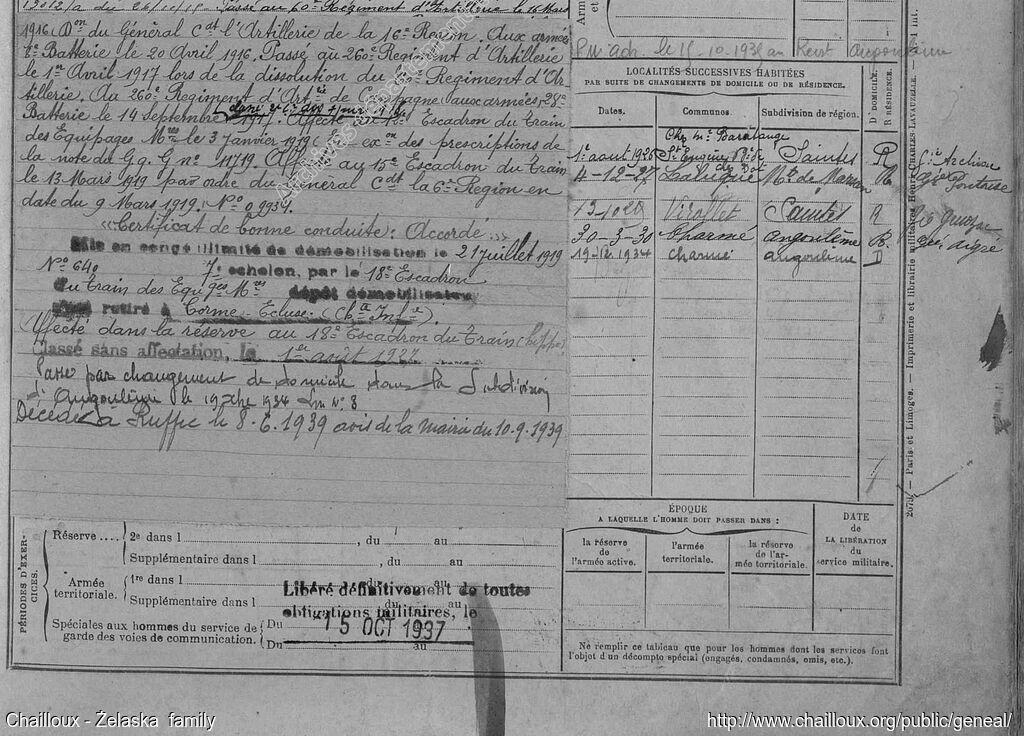 Passé au 60e Régiment d'Artillerie le 16 Mars
1916. Don du Général Cdt l'Artillerie de la 16e Région. Aux armées
Batterie le 20 Avril 1916. Passé au 260e Régiment d'Artillerie
le 1er Avril 1917 lors de la dissolution du Régiment d'Ar-
tillerie. Au 260e Régiment d'Artie de Campagne aux armées, 28e
Batterie le 14 Septembre 1917. Affecté au Escadron du Train
des Equipages Mres le 3 Janvier 1919 en exon des prescriptions de
la note du G.Q.G no 11719. Affecté au 15e Escadron du Train
le 13 Mars 1919 par ordre du Général Cdt la 6e Région en
date du 9 Mars 1919. No 0,9934.
"Certificat de bonne conduite: Accordé"
Mis en congé illimité de démobilisation le 21 juillet 1919
No 640 7e échelon, par le 18e Escadron
du Train des Equiges Mres dépôt démobilisateur
retiré à Corme-Ecluse (Chte Infre).
Affecté dans la réserve au 18e Escadron du Train (hippo)
Classé sans affectation, le 1er août 1927
Passé par changement de domicile dans la Subdivision
d'Angoulême le 19 Xbre 1934 N° 8
Décédé à Ruffec le 8.6.1939 avis de la mairie du 10.9.1939
PÉRIODES D'EXER-
CICES.
Réserve .... 2e dans l , du au
Supplémentaire dans l , du au
Armée
territoriale. 1re dans l , du au
Supplémentaire dans l du au
Spéciales aux hommes du service de
garde des voies de communication. Du
Du au
Libéré définitivement de toutes
obligations militaires, le
15 OCT 1937
Armé
et
LOCALITÉS SUCCESSIVES HABITÉES
PAR SUITE DE CHANGEMENTS DE DOMICILE OU DE RÉSIDENCE.
D DOMICILE.
R RÉSIDENCE.
Dates. Communes. Subdivision de région.
1er aout 1926 Saintes R
4-12-27 Mt de Marsan R
Virollet Saintes R
30-3-30 Charmé Angoulême R
19-12-1934 Charmé Angoulême D
ÉPOQUE
A LAQUELLE L'HOMME DOIT PASSER DANS :
la réserve
de
l'armée active. l'armée
territoriale. la réserve
de l'ar-
mée territoriale.
DATE
de
LA LIBÉRATION
du
service militaire.
Ne remplir ce tableau que pour les hommes dont les services font
l'objet d'un décompte spécial (engagés, condamnés, omis, etc.).
2673. — Paris et Limoges. — Imprimerie et librairie militaires Henri CHARLES-LAVAUZELLE. —
Chailloux - Żelaska family
http://www.chailloux.org/public/geneal/